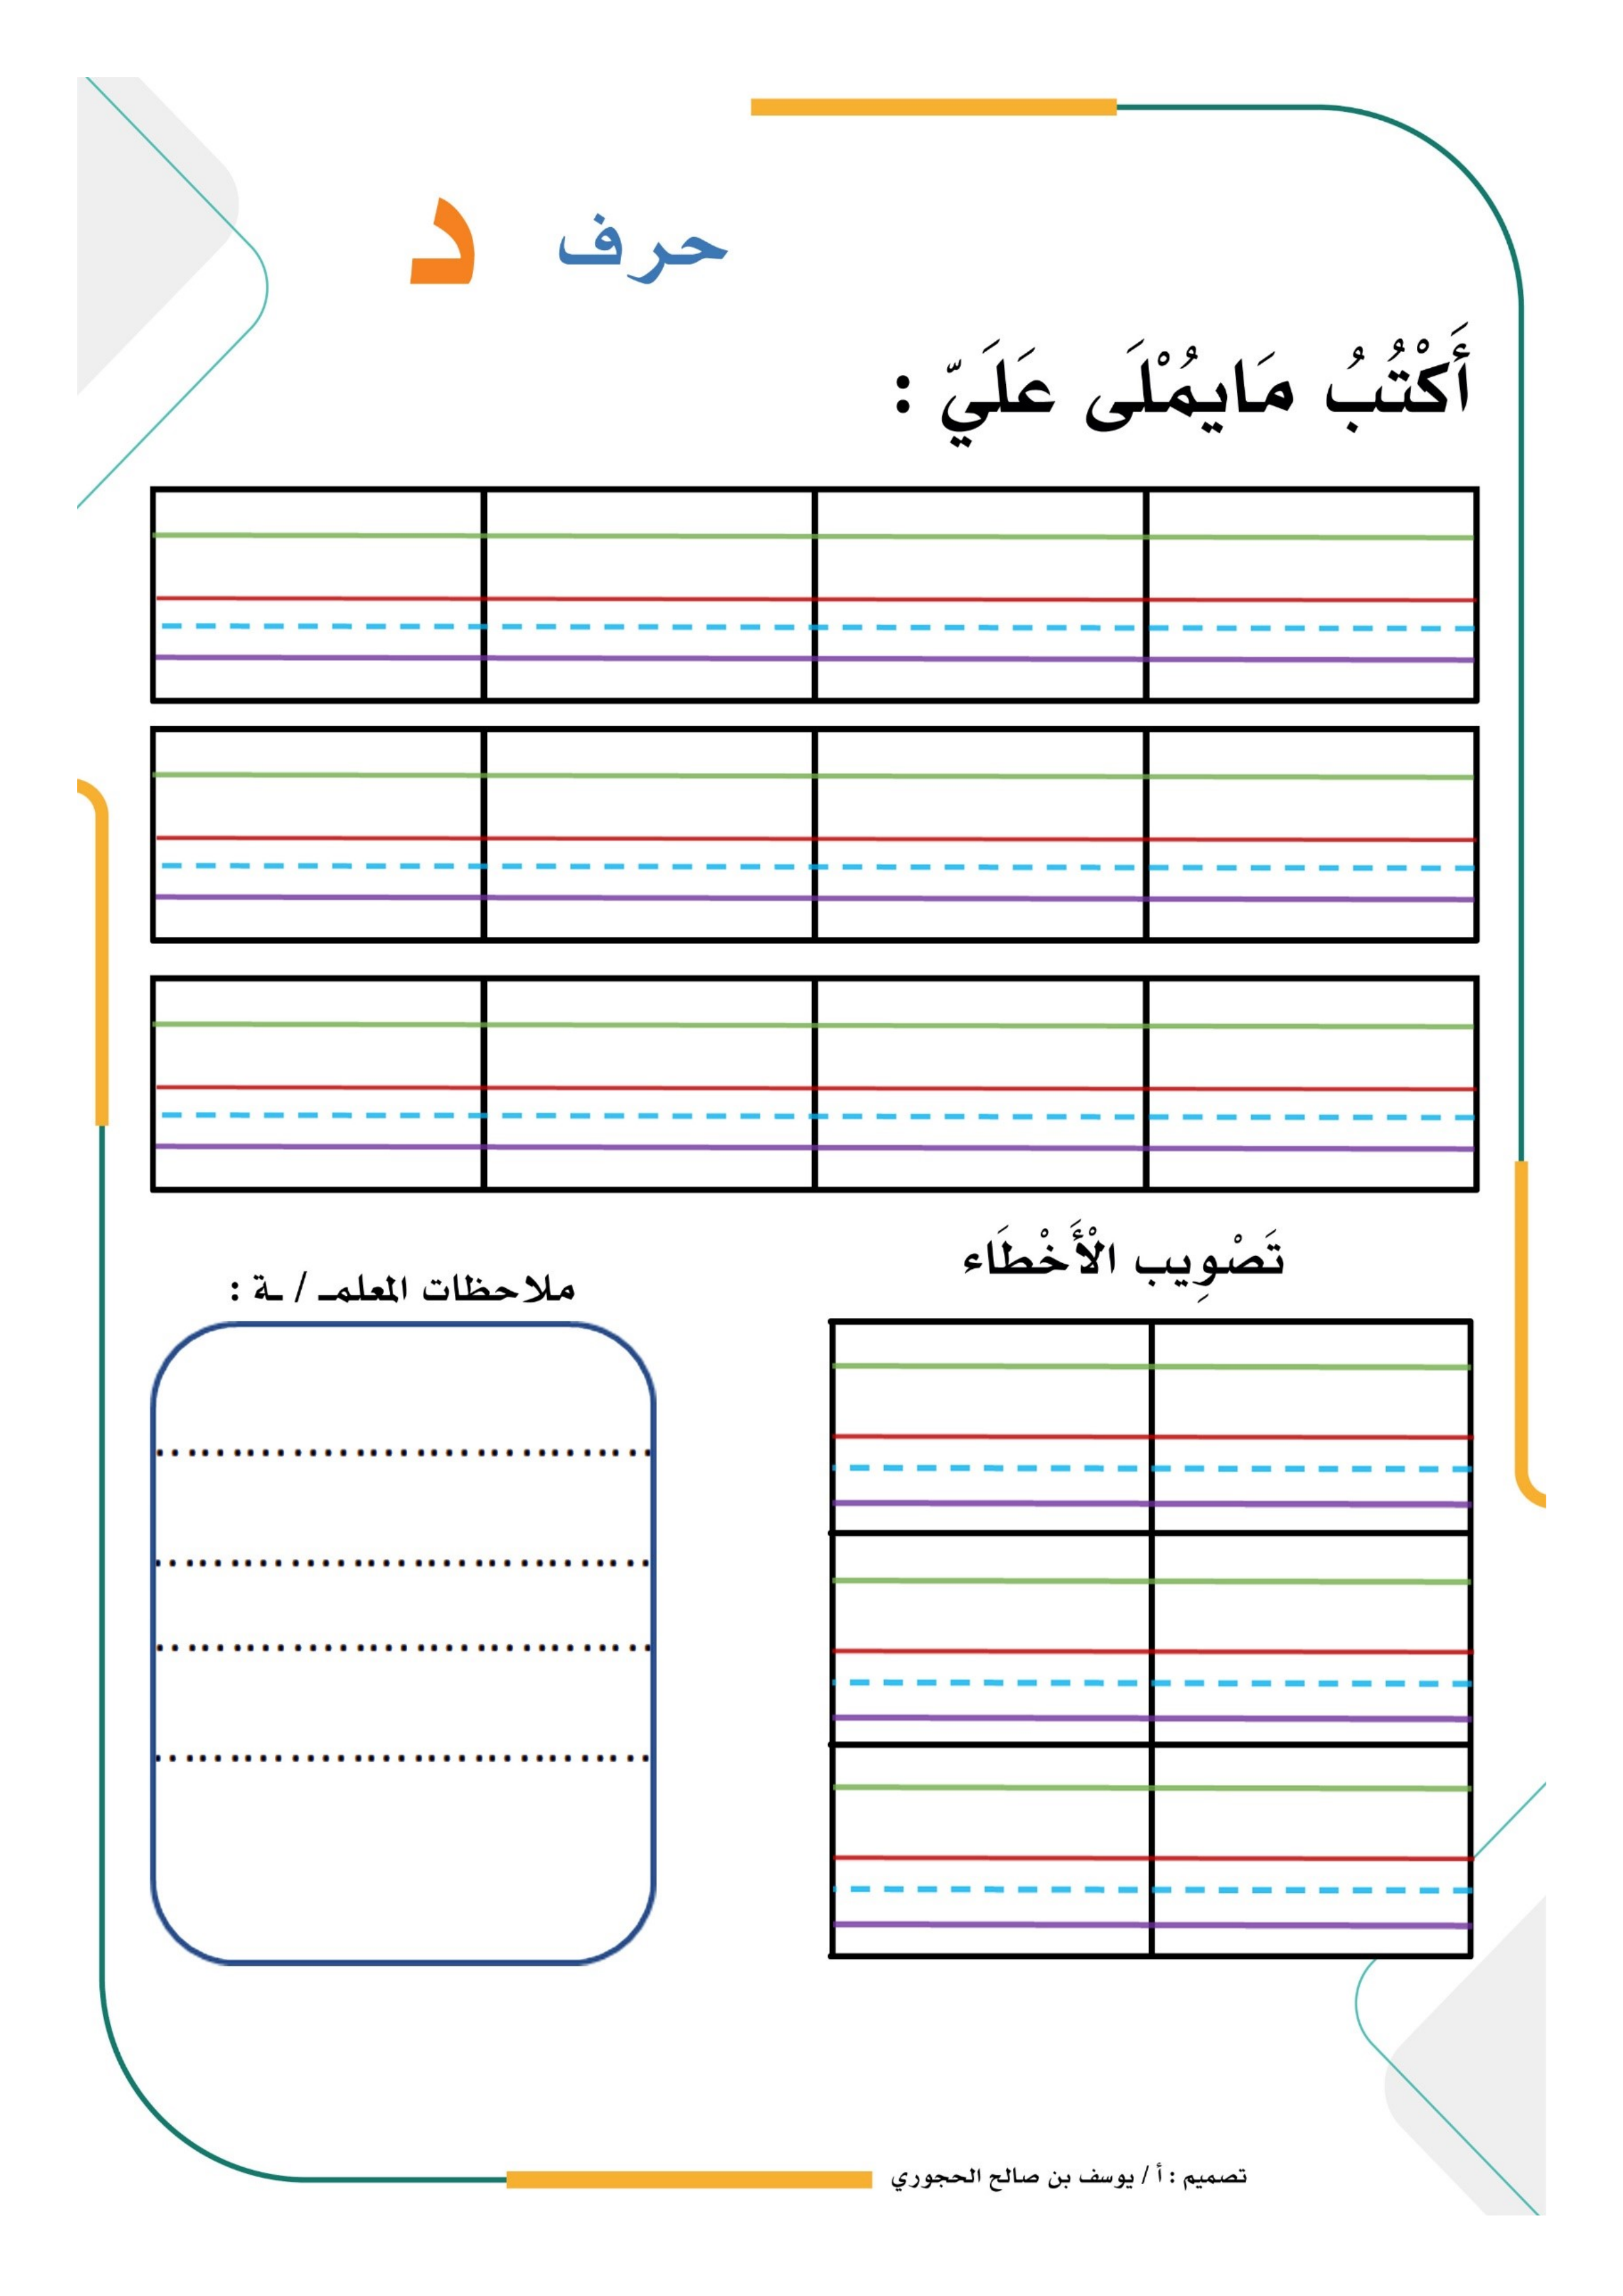 حرف د
أَكْتُبُ مَايُمْلَى عَلَيّ :
تَصْوِيب الْأَخْطَاء
ملاحظات المعلمـ / ـة :
تصميم : أ / يوسف بن صالح الحجوري